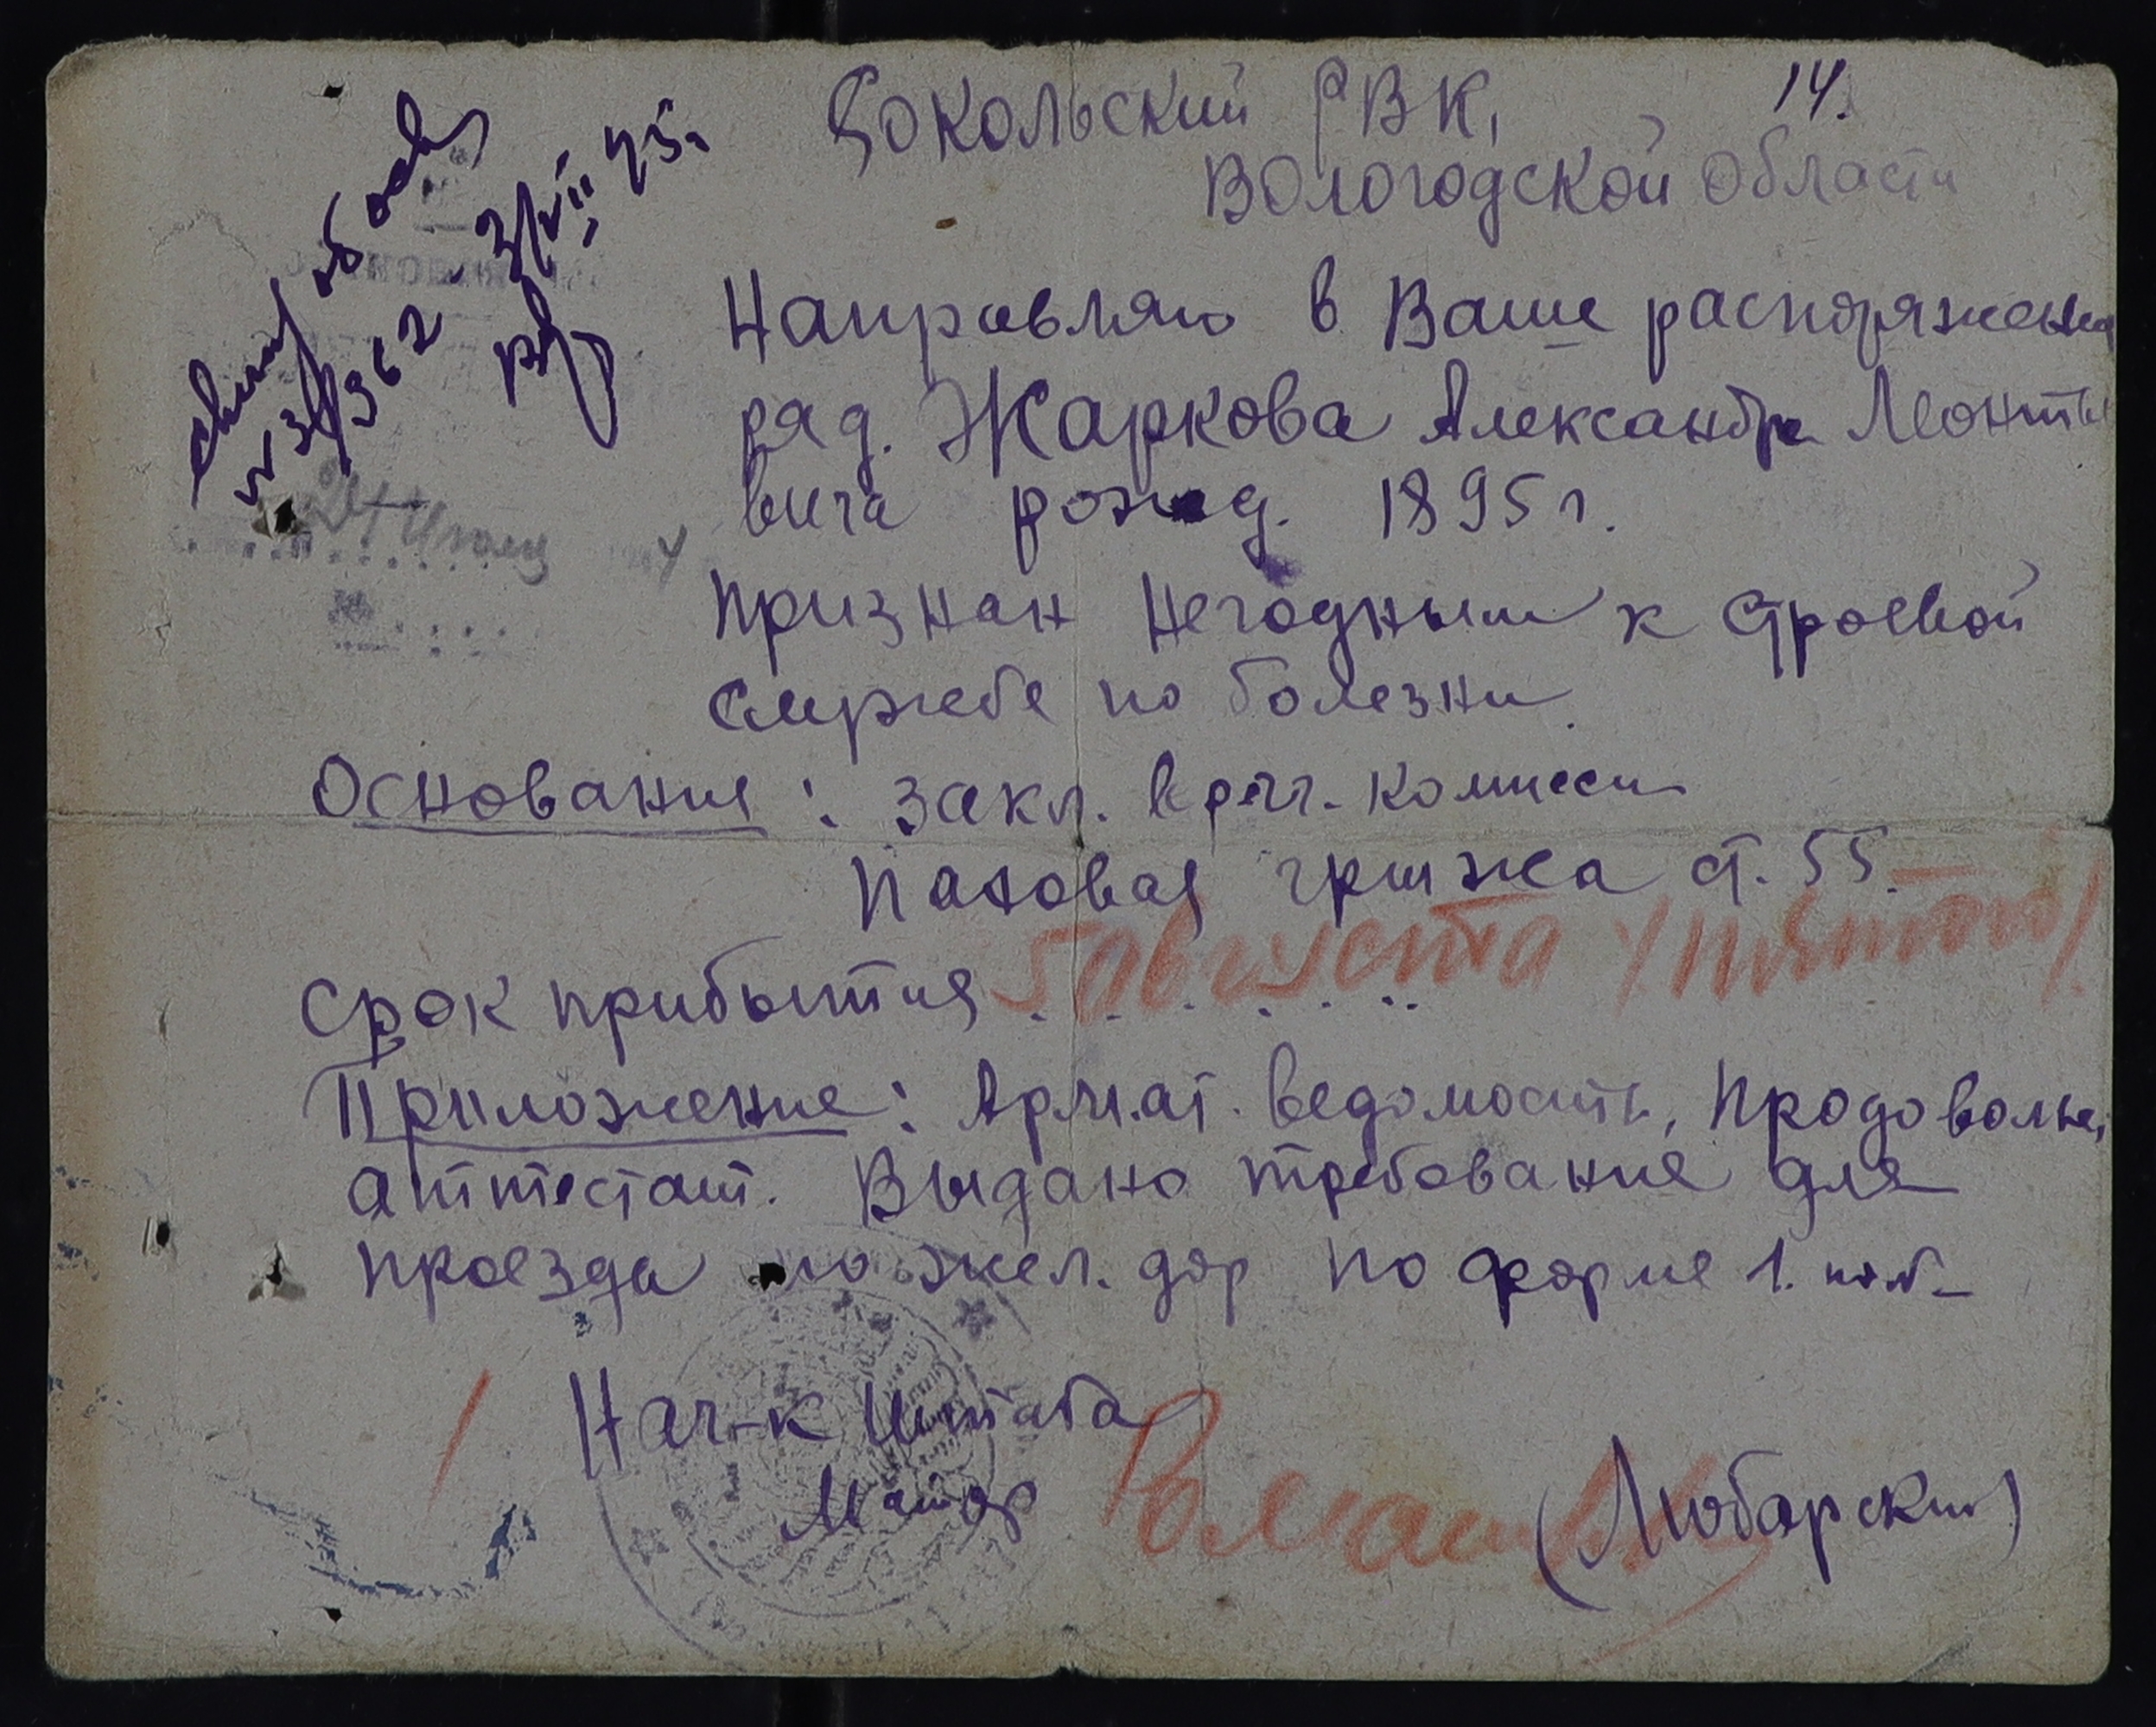 14.
Сокольский РВК,
Вологодской области
3/VII 45г.
Направляю в Ваше распоряжения
ряд. Жаркова Александра Леонтье
вича рожд. 1895 г.
признан негодным к строевой
службе по болезни.
Основание: Закл. врач. комисси
Паховая грыжа ст. 55.
Срок прибытия 5 августа /пятого/.
Приложение: Армат. ведомость, Продовольс,
аттестат. Выдано требование для
проезда по жел. дор по форме 1.
Нач-к штаба
Майор (Любарский)